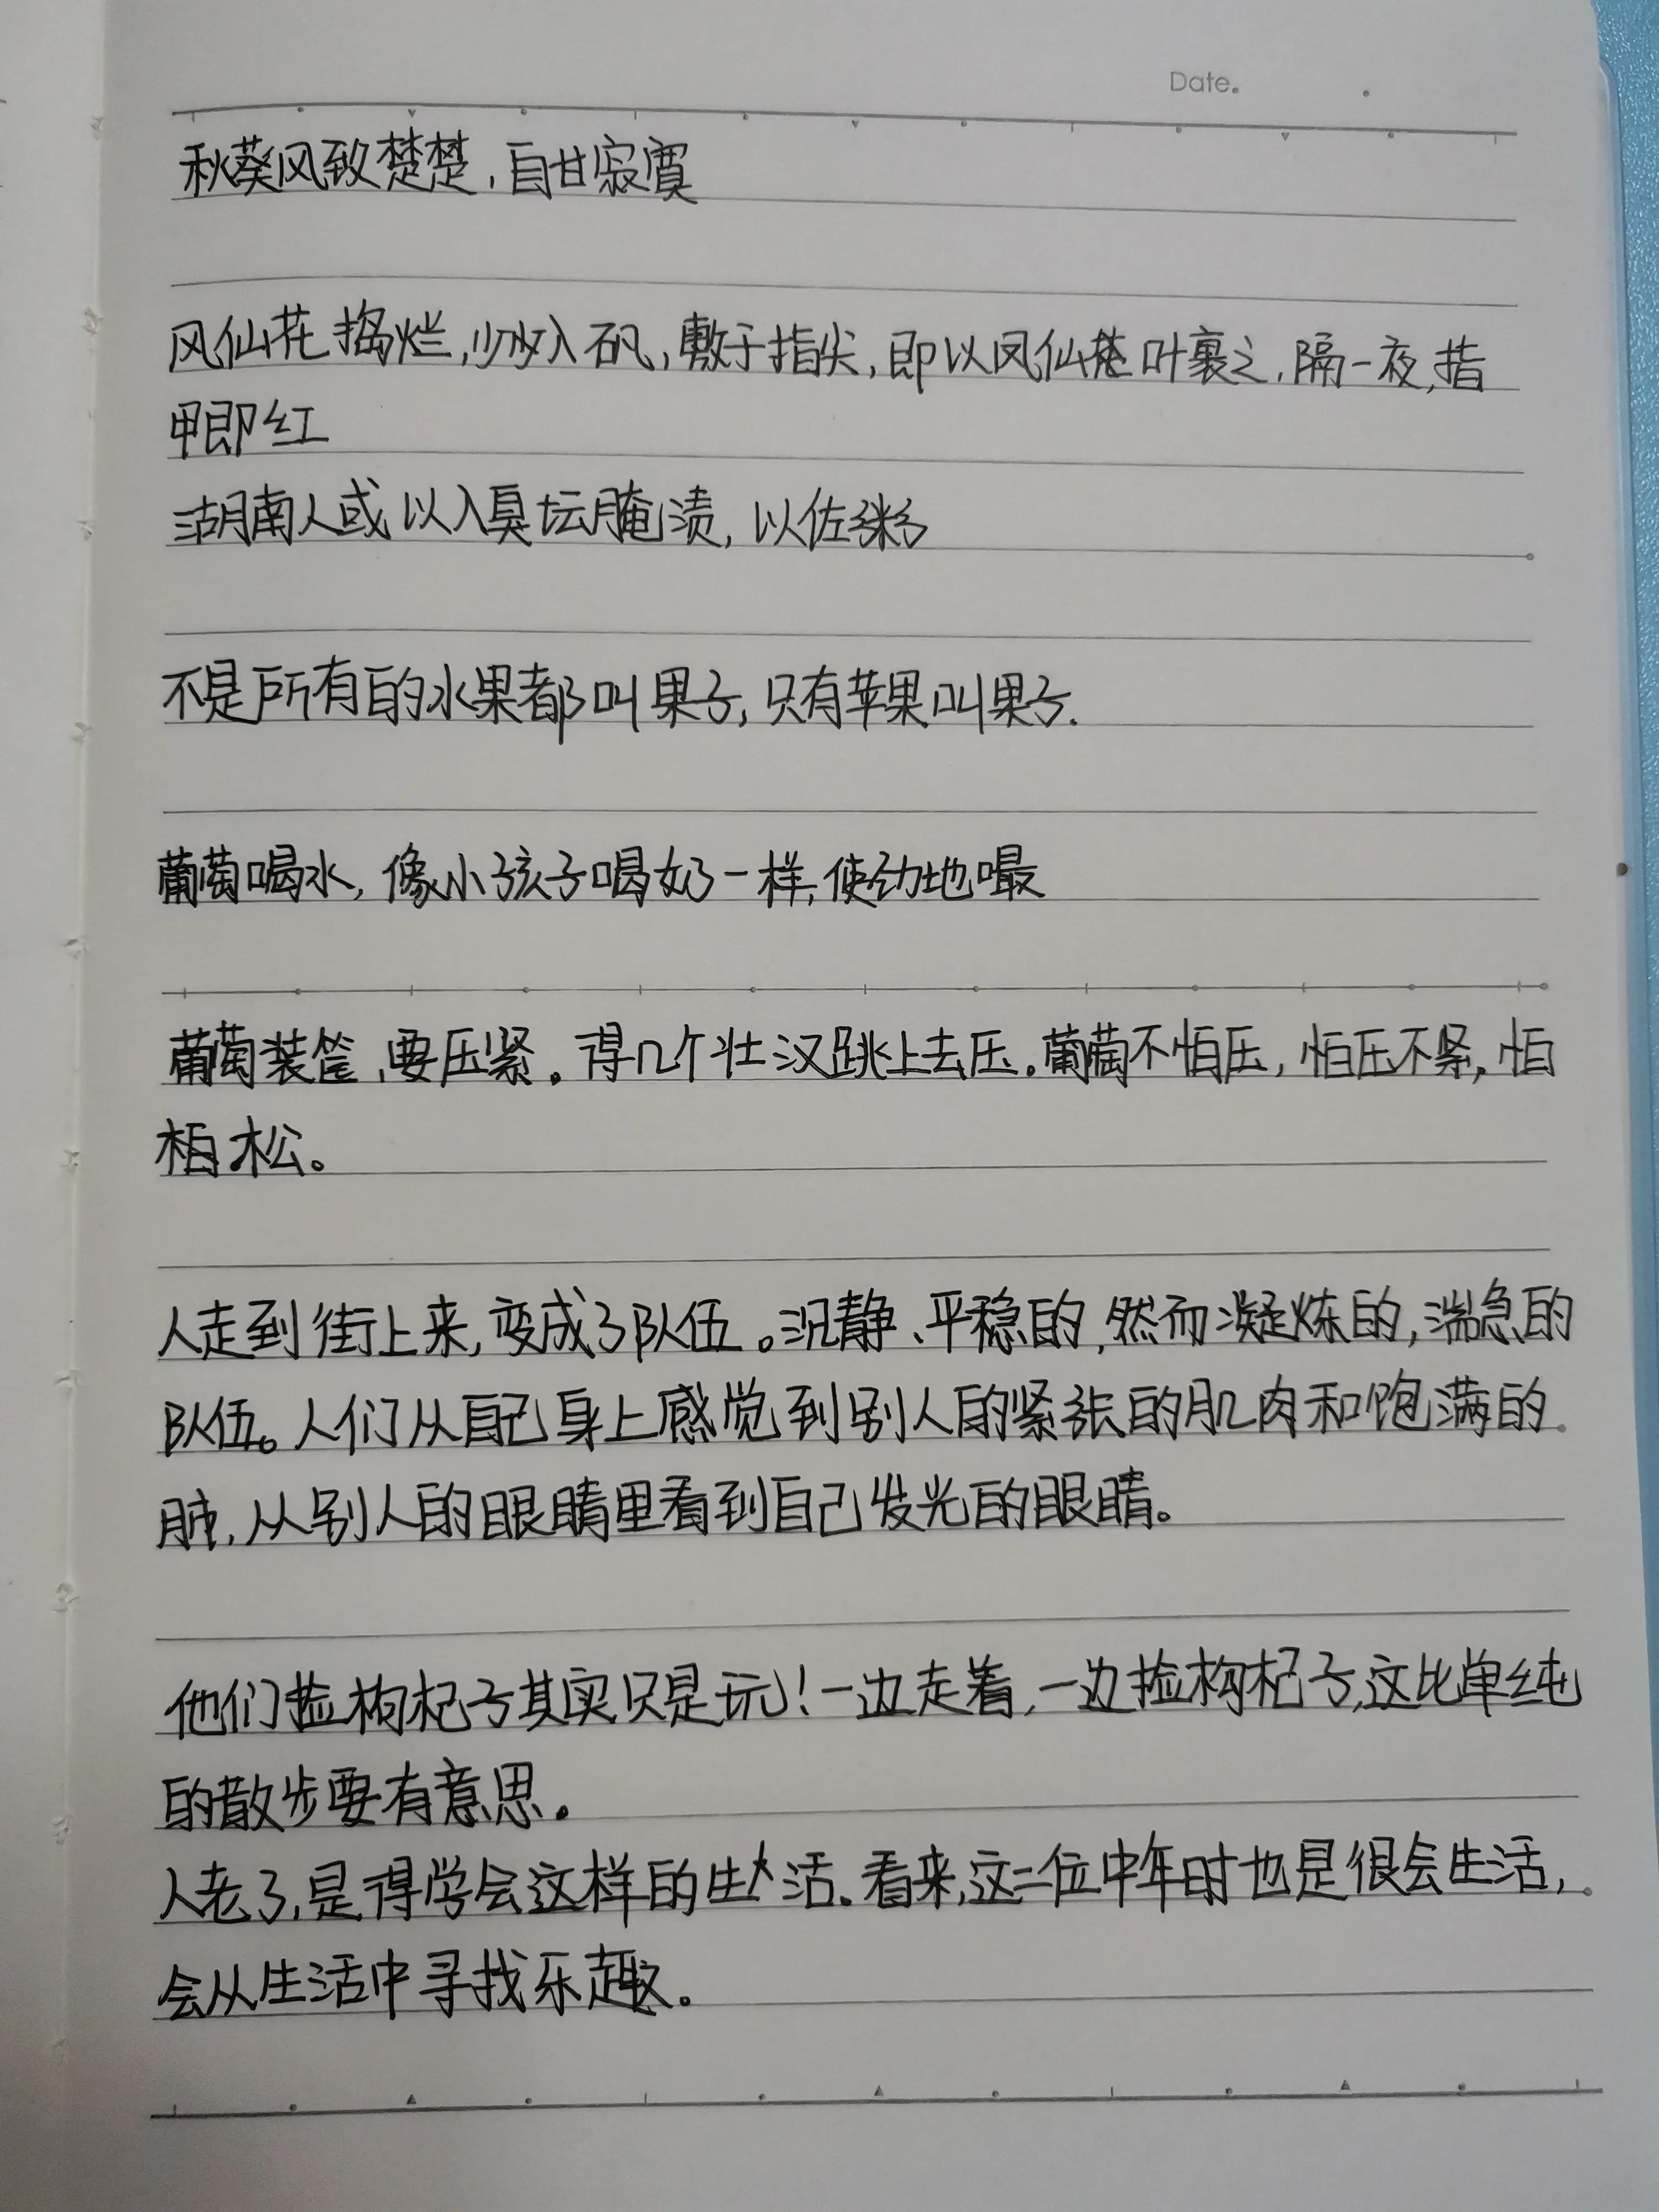 Date.
秋葵风致楚楚,自甘寂寞
风仙花捣烂,少入矾,敷于指尖,即以凤仙花叶裹之,隔一夜,指
甲即红
湖南人或以入臭坛腌渍,以佐粥
不是所有的水果都叫果子,只有苹果叫果子.
葡萄喝水,像小孩子喝奶一样,使劲地嘬
葡萄装筐,要压紧。得几个壮汉跳上去压。葡萄不怕压,怕压不紧,怕
柏松。
人走到街上来,变成了队伍。沉静、平稳的,然而凝炼的,湍急的
队伍。人们从自己身上感觉到别人的紧张的肌肉和饱满的
肺,从别人的眼睛里看到自己发光的眼睛。
他们捡枸杞子其实只是玩!一边走着,一边捡枸杞子,这比单纯
的散步要有意思。
人老了,是得学会这样的生活。看来,这二位中年时也是很会生活,
会从生活中寻找乐趣。